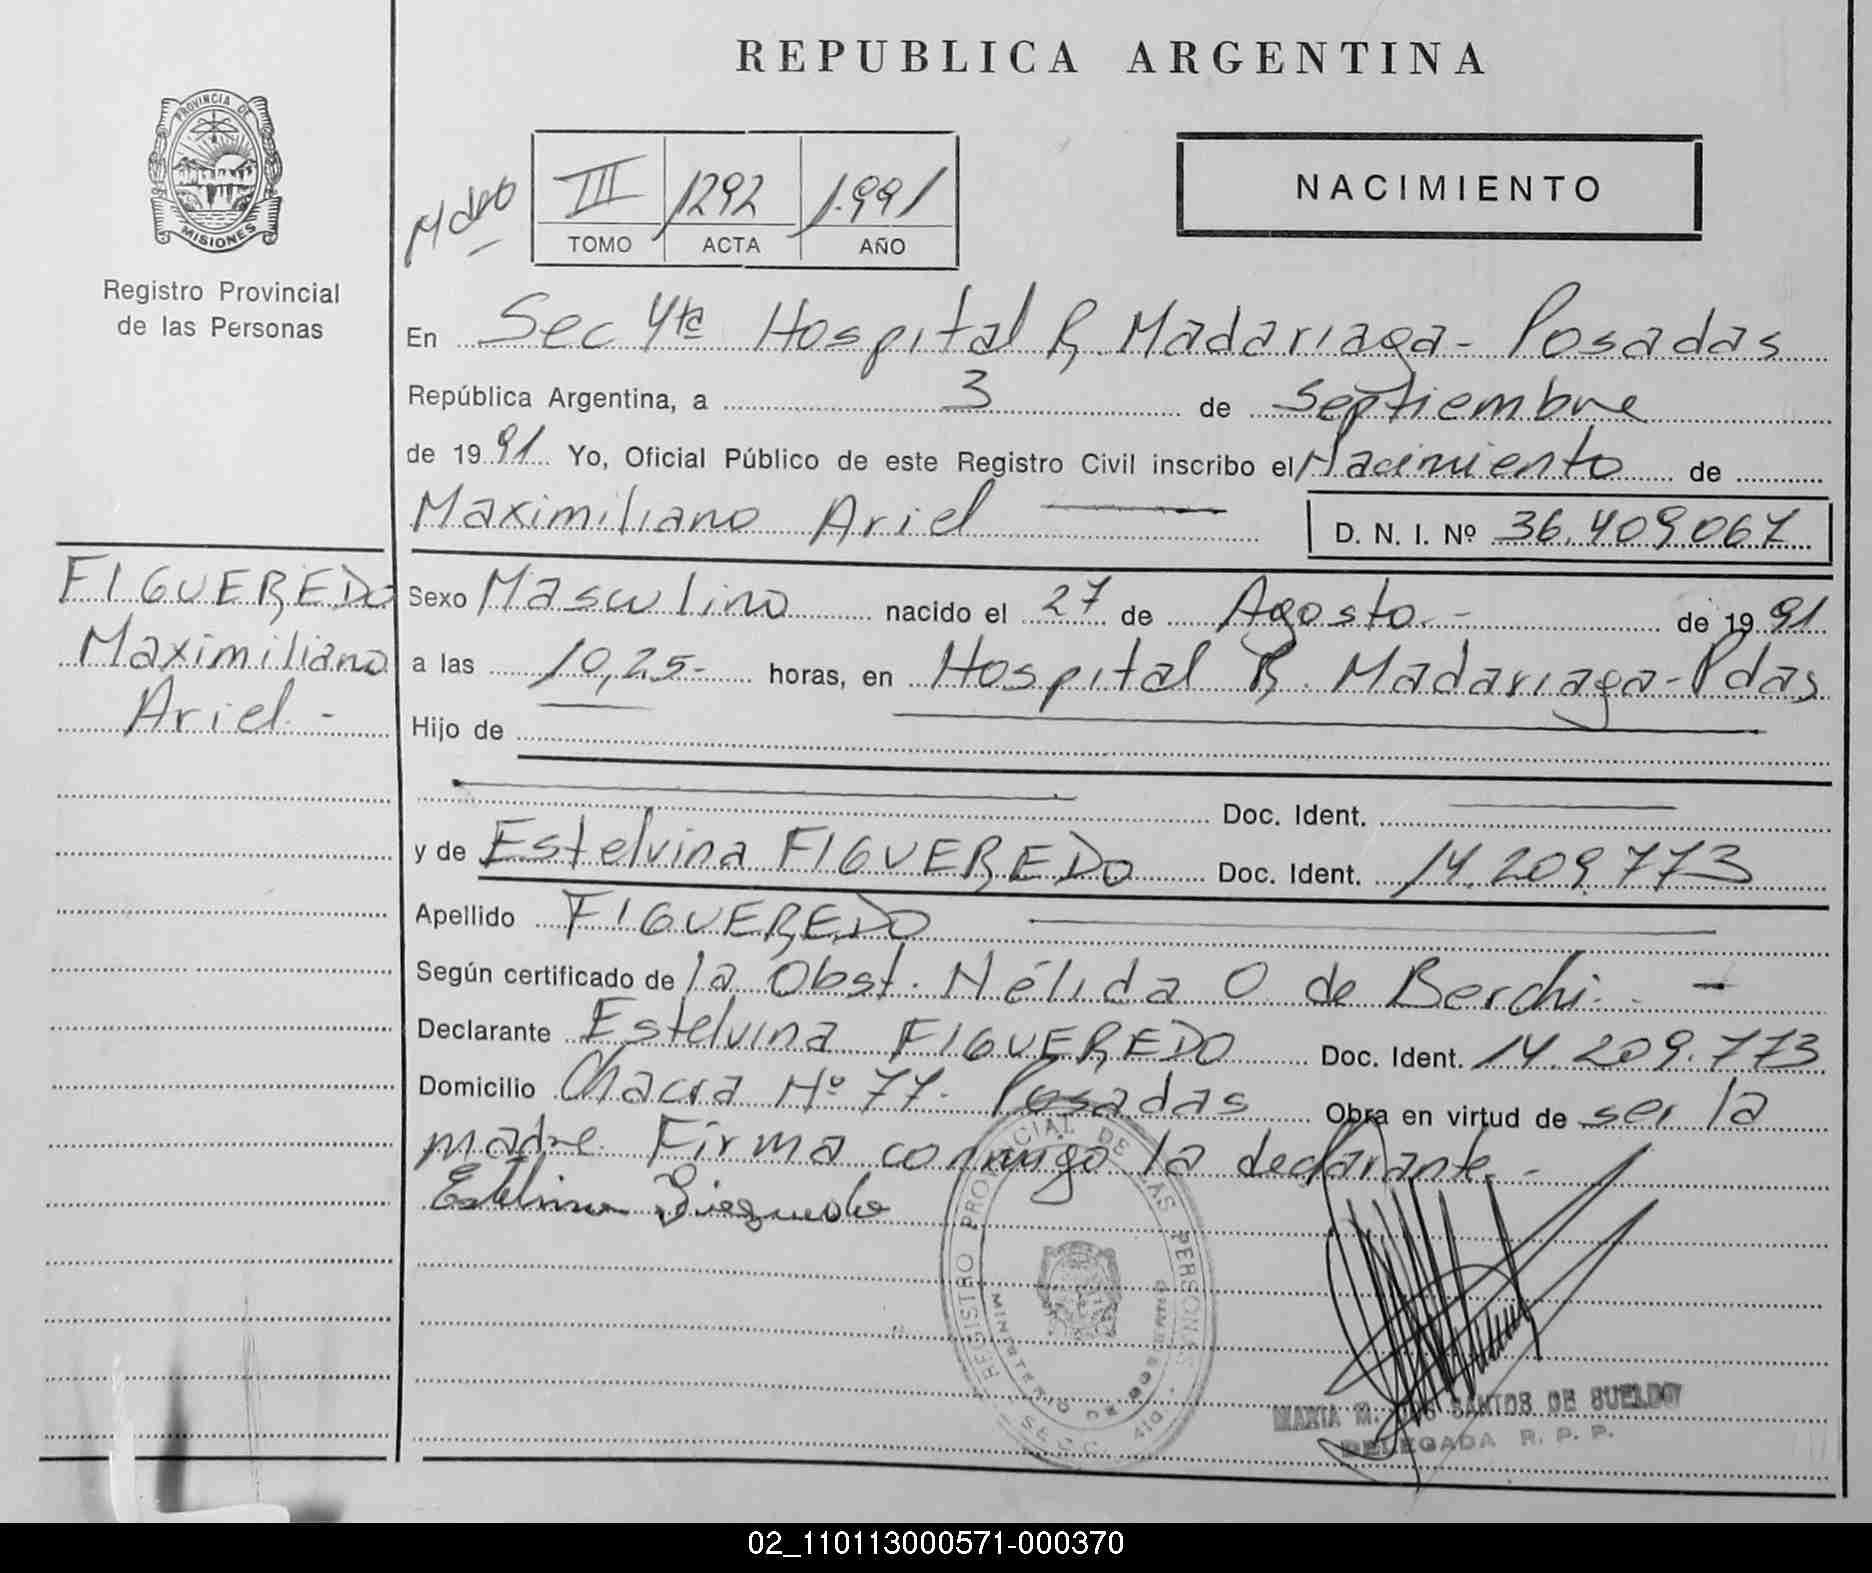 REPUBLICA ARGENTINA
PROVINCIA DE
MISIONES
Registro Provincial
de las Personas
III 1292 1.991
TOMO ACTA AÑO
NACIMIENTO
En Sec 4ta Hospital R. Madariaga - Posadas
República Argentina, a 3 de Septiembre
de 1991 Yo, Oficial Público de este Registro Civil inscribo el Nacimiento de
Maximiliano Ariel D. N. I. Nº 36.409.067
FIGUEREDO
Maximiliano
Ariel.-
Sexo Masculino nacido el 27 de Agosto.- de 1991
a las 10,25- horas, en Hospital R. Madariaga-Pdas
Hijo de
Doc. Ident.
y de Estelvina FIGUEREDO Doc. Ident. 14.209.773
Apellido FIGUEREDO
Según certificado de la Obst. Nélida O de Berchi. -
Declarante Estelvina FIGUEREDO Doc. Ident. 14.209.773
Domicilio Chacra Nº 77. Posadas Obra en virtud de ser la
madre. Firma conmigo la declarante.-
REGISTRO PROVINCIAL DE LAS PERSONAS
MINISTERIO DE
MARIA M. DOS SANTOS DE SUELDO
DELEGADA R. P. P.
02_110113000571-000370